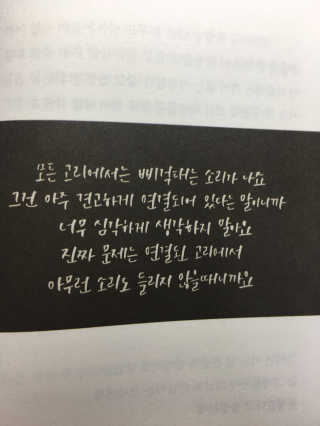 모든 고리에서는 삐걱대는 소리가 나요
그건 아주 견고하게 연결되어 있다는 말이니까
너무 심각하게 생각하지 말아요
진짜 문제는 연결된 고리에서
아무런 소리도 들리지 않을때니까요